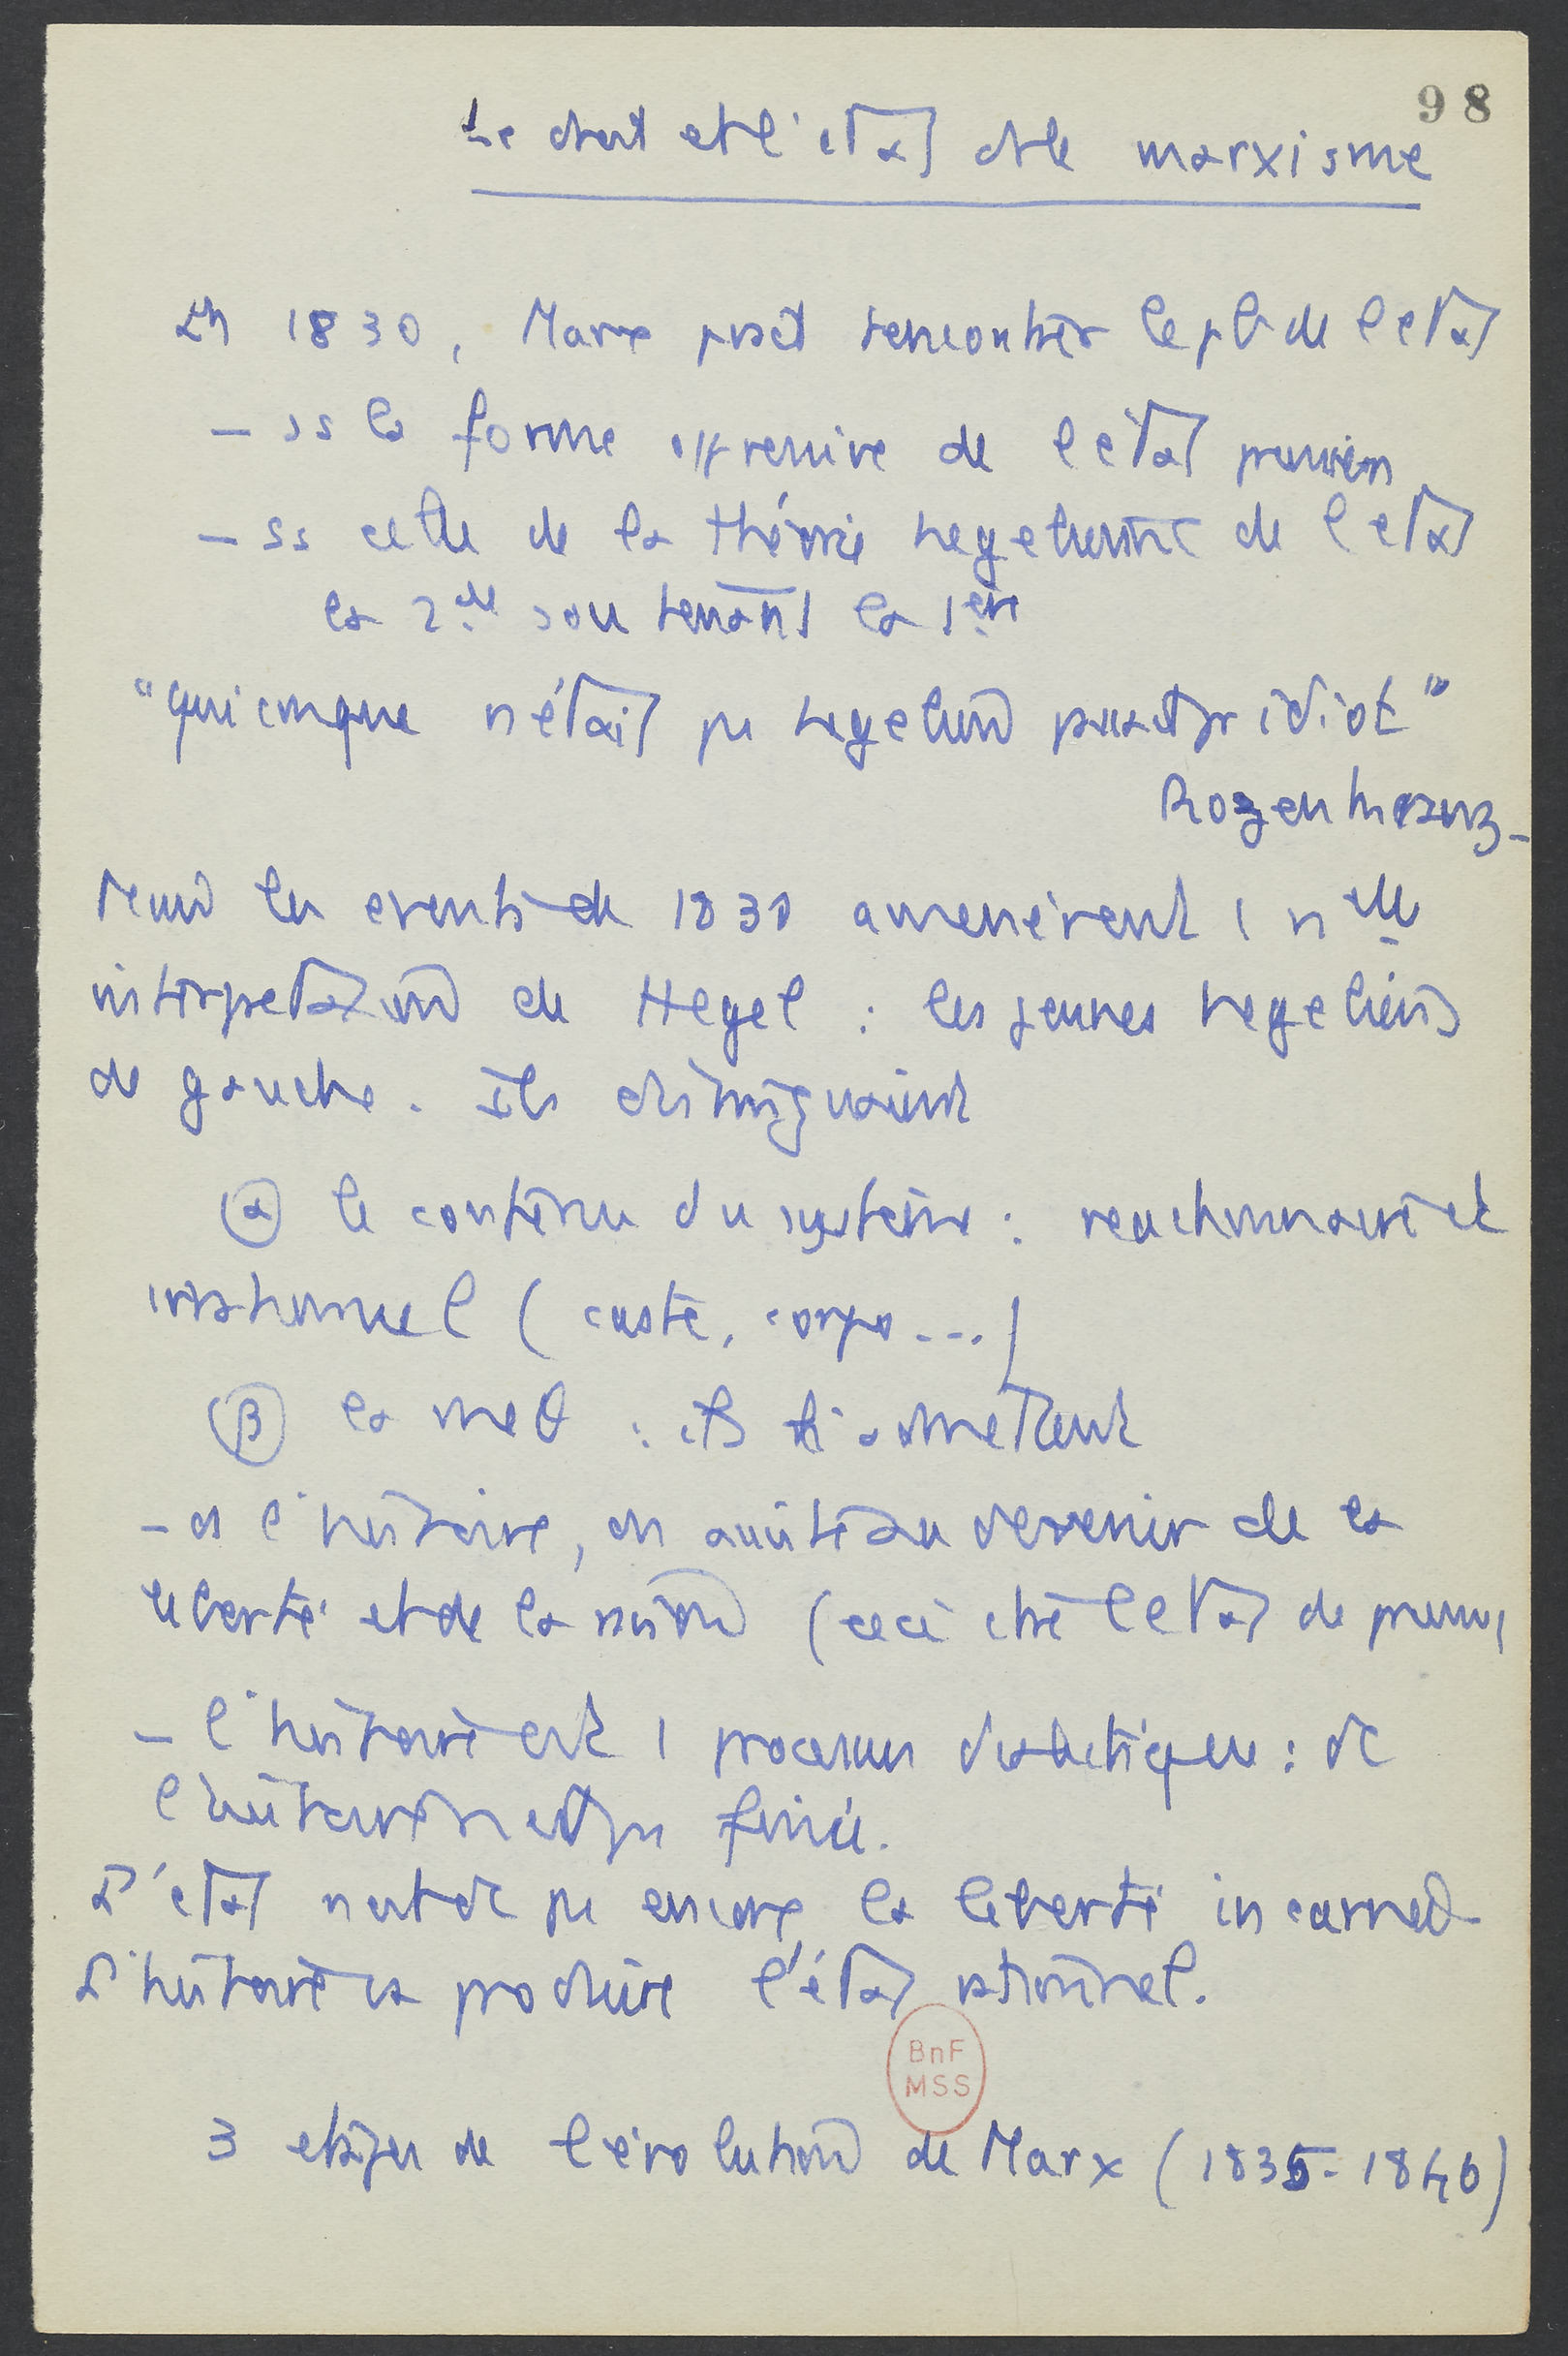 98
Le droit et l'état ds le marxisme
En 1830, Marx put rencontrer le pb de l'etat
- ss la forme oppressive de l'état prussien
- ss celle de la théorie hegelienne de l'etat
la 2de soutenant la 1ère
"quiconque n'était pas hegelien passait pr idiot"
Rozenkranz.
Mais les events de 1830 amenèrent 1 nelle
interpretation de Hegel : les jeunes hegeliens
de gauche. Ils distinguaient
α le contenu du système : reactionnaire et
irrationnel (caste, corpo...)
β la meθ : ils admettent
- ds l'histoire, on assiste au devenir de la
liberté et de la raison (ceci ctre l'etat de prusse)
- l'histoire est 1 processus dialectique : dc
l'histoire n'est pas finie.
L'état n'est dc pas encore la liberté incarnée
L'histoire va produire l'état rationnel.
BnF
MSS
3 etapes de l'évolution de Marx (1835-1846)